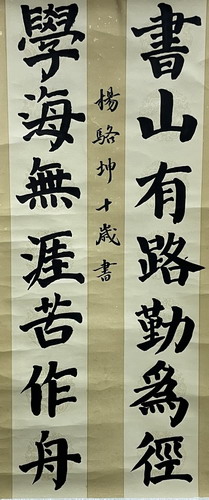 書山有路勤為徑
楊駱坤十歲書
學海無涯苦作舟